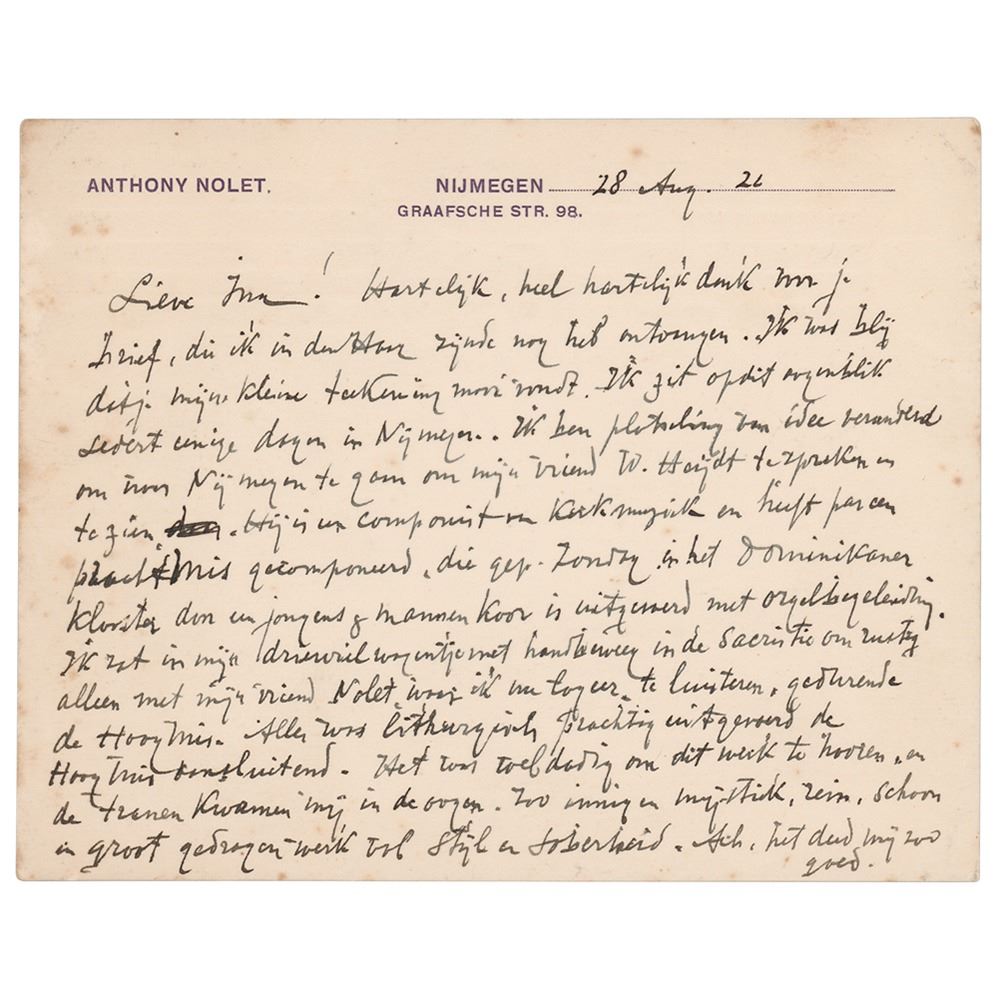 ANTHONY NOLET.
NIJMEGEN 28 Aug. 21
GRAAFSCHE STR. 98.
Lieve Ina! Hartelijk, heel hartelijk dank voor je
brief, die ik in den Haag zijnde nog heb ontvangen. Ik was blij
dat je mijn kleine teekening mooi vondt. Ik zit op dit oogenblik
sedert eenige dagen in Nijmegen. Ik ben plotseling van idee veranderd
om naar Nijmegen te gaan om mijn vriend W. Heijdt te spreken en
te zien. Hij is een componist van Kerkmuziek en heeft pas een
pracht Mis gecomponeerd, die gep. Zondag in het Dominikaner
klooster door een jongens & mannen koor is uitgevoerd met orgelbegeleiding.
Ik zat in mijn driewielwagentje met handbeweeg in de Sacristie om rustig
alleen met mijn vriend Nolet, waar ik nu logeer, te luisteren, gedurende
de Hoogmis. Alles was lithurgisch prachtig uitgevoerd de
Hoog Mis aansluitend. Het was weldadig om dit werk te hooren, en
de tranen kwamen mij in de oogen. Zoo innig en mystiek, rein, schoon
en groot gedragen werk vol Stijl en Soberheid. Ach, het deed mij zoo
goed.